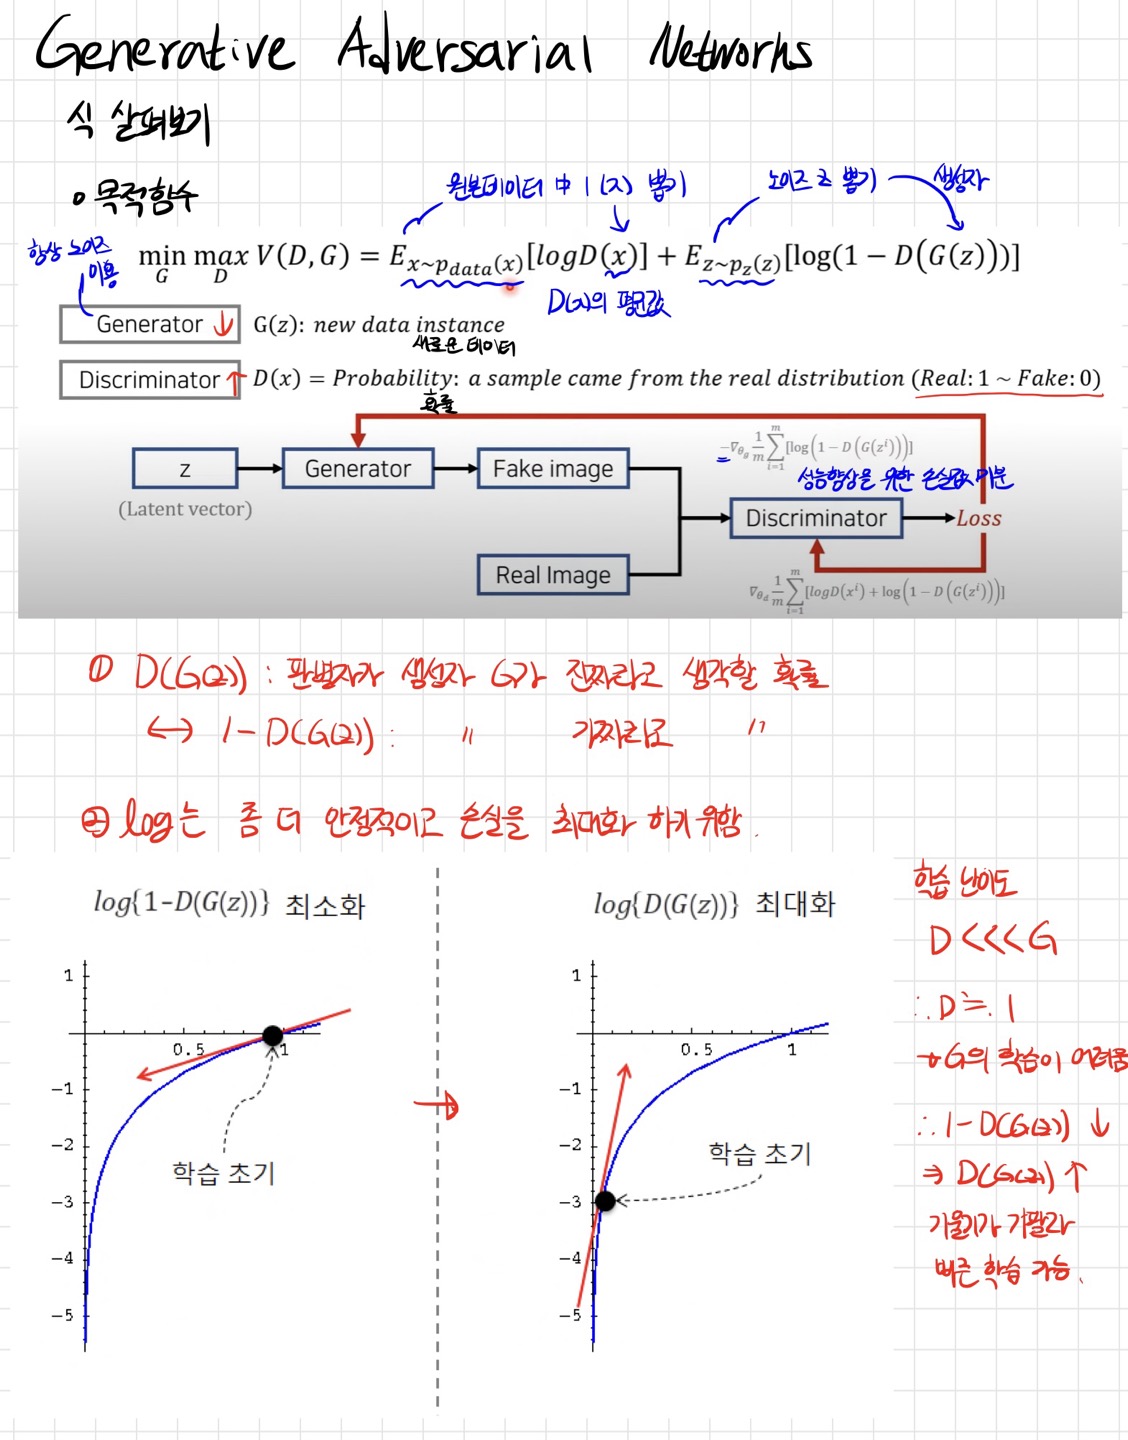 Generative Adversarial Networks
식 살펴보기
목적함수
원본데이터 中 1(x) 뽑기
노이즈 z 뽑기
생성자
항상 노이즈
이용
min max V(D, G) = E_{x~p_{data}(x)}[logD(x)] + E_{z~p_z(z)}[log(1 − D(G(z)))]
G D
D(x)의 평균값
Generator ↓ G(z): new data instance
새로운 데이터
Discriminator ↑ D(x) = Probability: a sample came from the real distribution (Real: 1 ~ Fake: 0)
확률
−∇_{θ_g} 1/m ∑_{i=1}^{m} [log(1 − D(G(z^i)))]
성능향상을 위한 손실값 미분
z → Generator → Fake image
(Latent vector)
Discriminator → Loss
Real Image
∇_{θ_d} 1/m ∑_{i=1}^{m} [logD(x^i) + log(1 − D(G(z^i)))]
① D(G(z)) : 판별자가 생성자 G가 진짜라고 생각할 확률
↔ 1 - D(G(z)) : " 가짜라고 "
② log는 좀 더 안정적이고 손실을 최대화 하기 위함.
log{1−D(G(z))} 최소화
log{D(G(z))} 최대화
1
0.5 1
−1
−2
−3
−4
−5
학습 초기
→
1
0.5 1
−1
−2
−3
−4
−5
학습 초기
학습 난이도
D <<< G
∴ D ≒ 1
→ G의 학습이 어려움
∴ 1 - D(G(z)) ↓
⇒ D(G(z)) ↑
기울기가 가팔라
빠른 학습 가능.